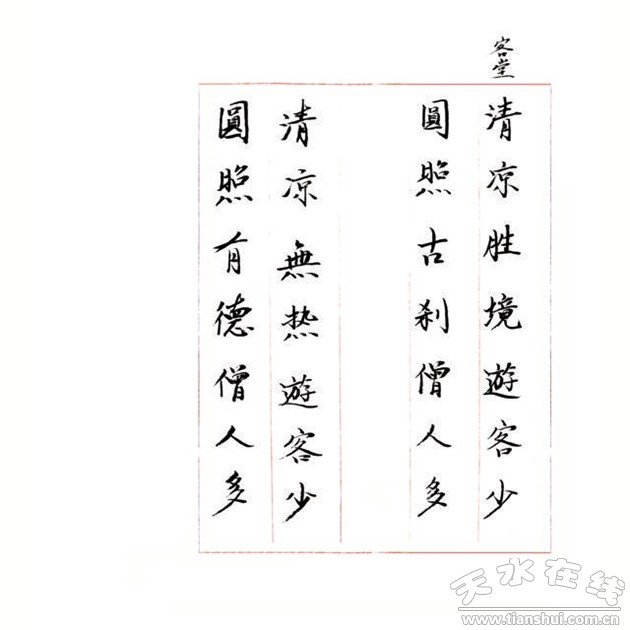 客堂
清凉胜境遊客少
圓照古刹僧人多
清凉無热遊客少
圓照有德僧人多
天水在线
www.tianshui.com.cn